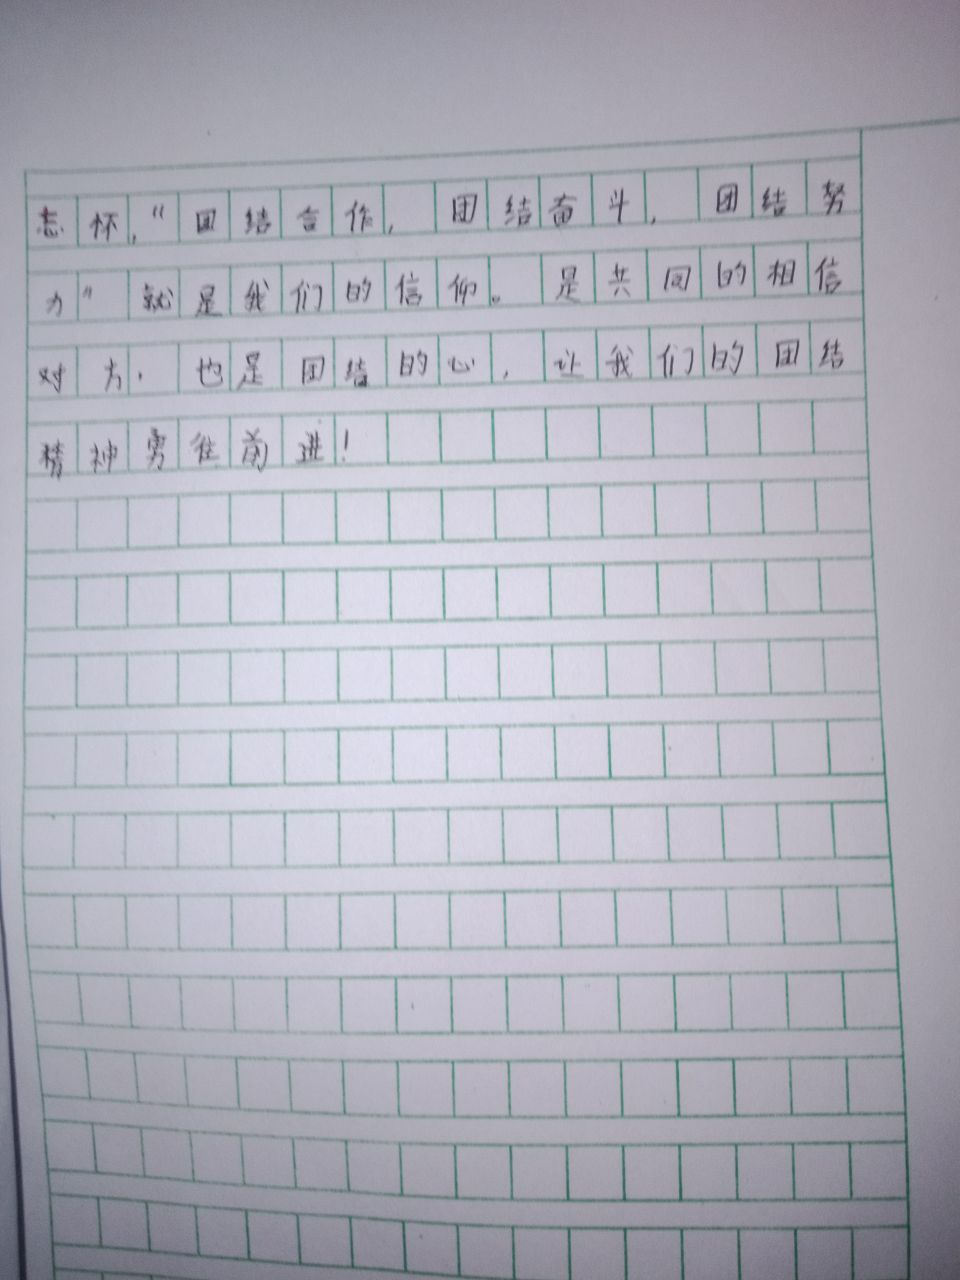 志怀,“团结合作,团结奋斗,团结努
力”就是我们的信仰。是共同的相信
对方,也是团结的心,让我们的团结
精神勇往前进!